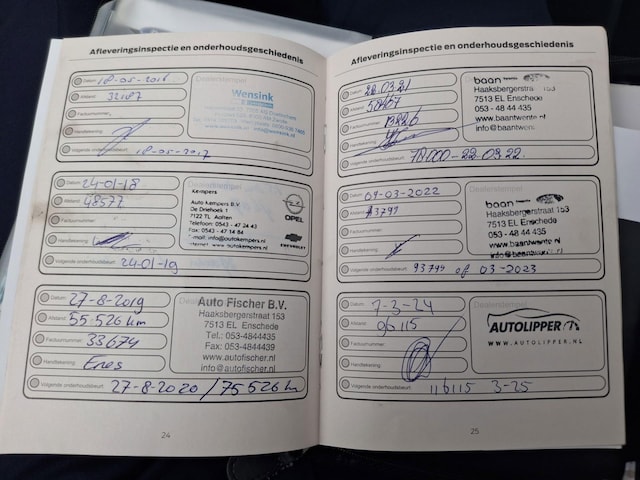 Afleveringsinspectie en onderhoudsgeschiedenis
Datum: 18-05-2016
Dealerstempel
Afstand: 32187
Wensink
Factuurnummer:
Handtekening:
Volgende onderhoudsbeurt: 18-05-2017
Datum: 24-01-18
Dealerstempel
Kempers
Afstand: 48577
Auto Kempers B.V.
De Driehoek 1
7122 TL Aalten
OPEL
Factuurnummer:
Telefoon: 0543 - 47 24 43
Fax: 0543 - 47 14 84
Handtekening:
e-mail: info@autokempers.nl
internet: www.autokempers.nl
CHEVROLET
Volgende onderhoudsbeurt: 24-01-19
Datum: 27-8-2019
Dealerstempel
Auto Fischer B.V.
Afstand: 55526 km
Haaksbergerstraat 153
7513 EL Enschede
Factuurnummer: 33674
Tel.: 053-4844435
Fax: 053-4844439
Handtekening: Enes
www.autofischer.nl
info@autofischer.nl
Volgende onderhoudsbeurt: 27-8-2020 / 75526 k
24
Afleveringsinspectie en onderhoudsgeschiedenis
Datum: 22.03.21
baan twente
Afstand:
Haaksbergerstraat 153
7513 EL Enschede
Factuurnummer:
053 - 48 44 435
www.baantwente.nl
Handtekening:
info@baantwente.nl
Volgende onderhoudsbeurt: 78000-22.03.22
Datum: 09-03-2022
Dealerstempel
baan twente
Afstand: 73799
Haaksbergerstraat 153
7513 EL Enschede
Factuurnummer:
053 - 48 44 435
www.baantwente.nl
Handtekening:
info@baantwente.nl
Volgende onderhoudsbeurt: 93799 of 03-2023
Datum: 7-3-24
Dealerstempel
Afstand: 96115
AUTOLIPPER
WWW.AUTOLIPPER.NL
Factuurnummer:
Handtekening:
Volgende onderhoudsbeurt: 116115 3-25
25